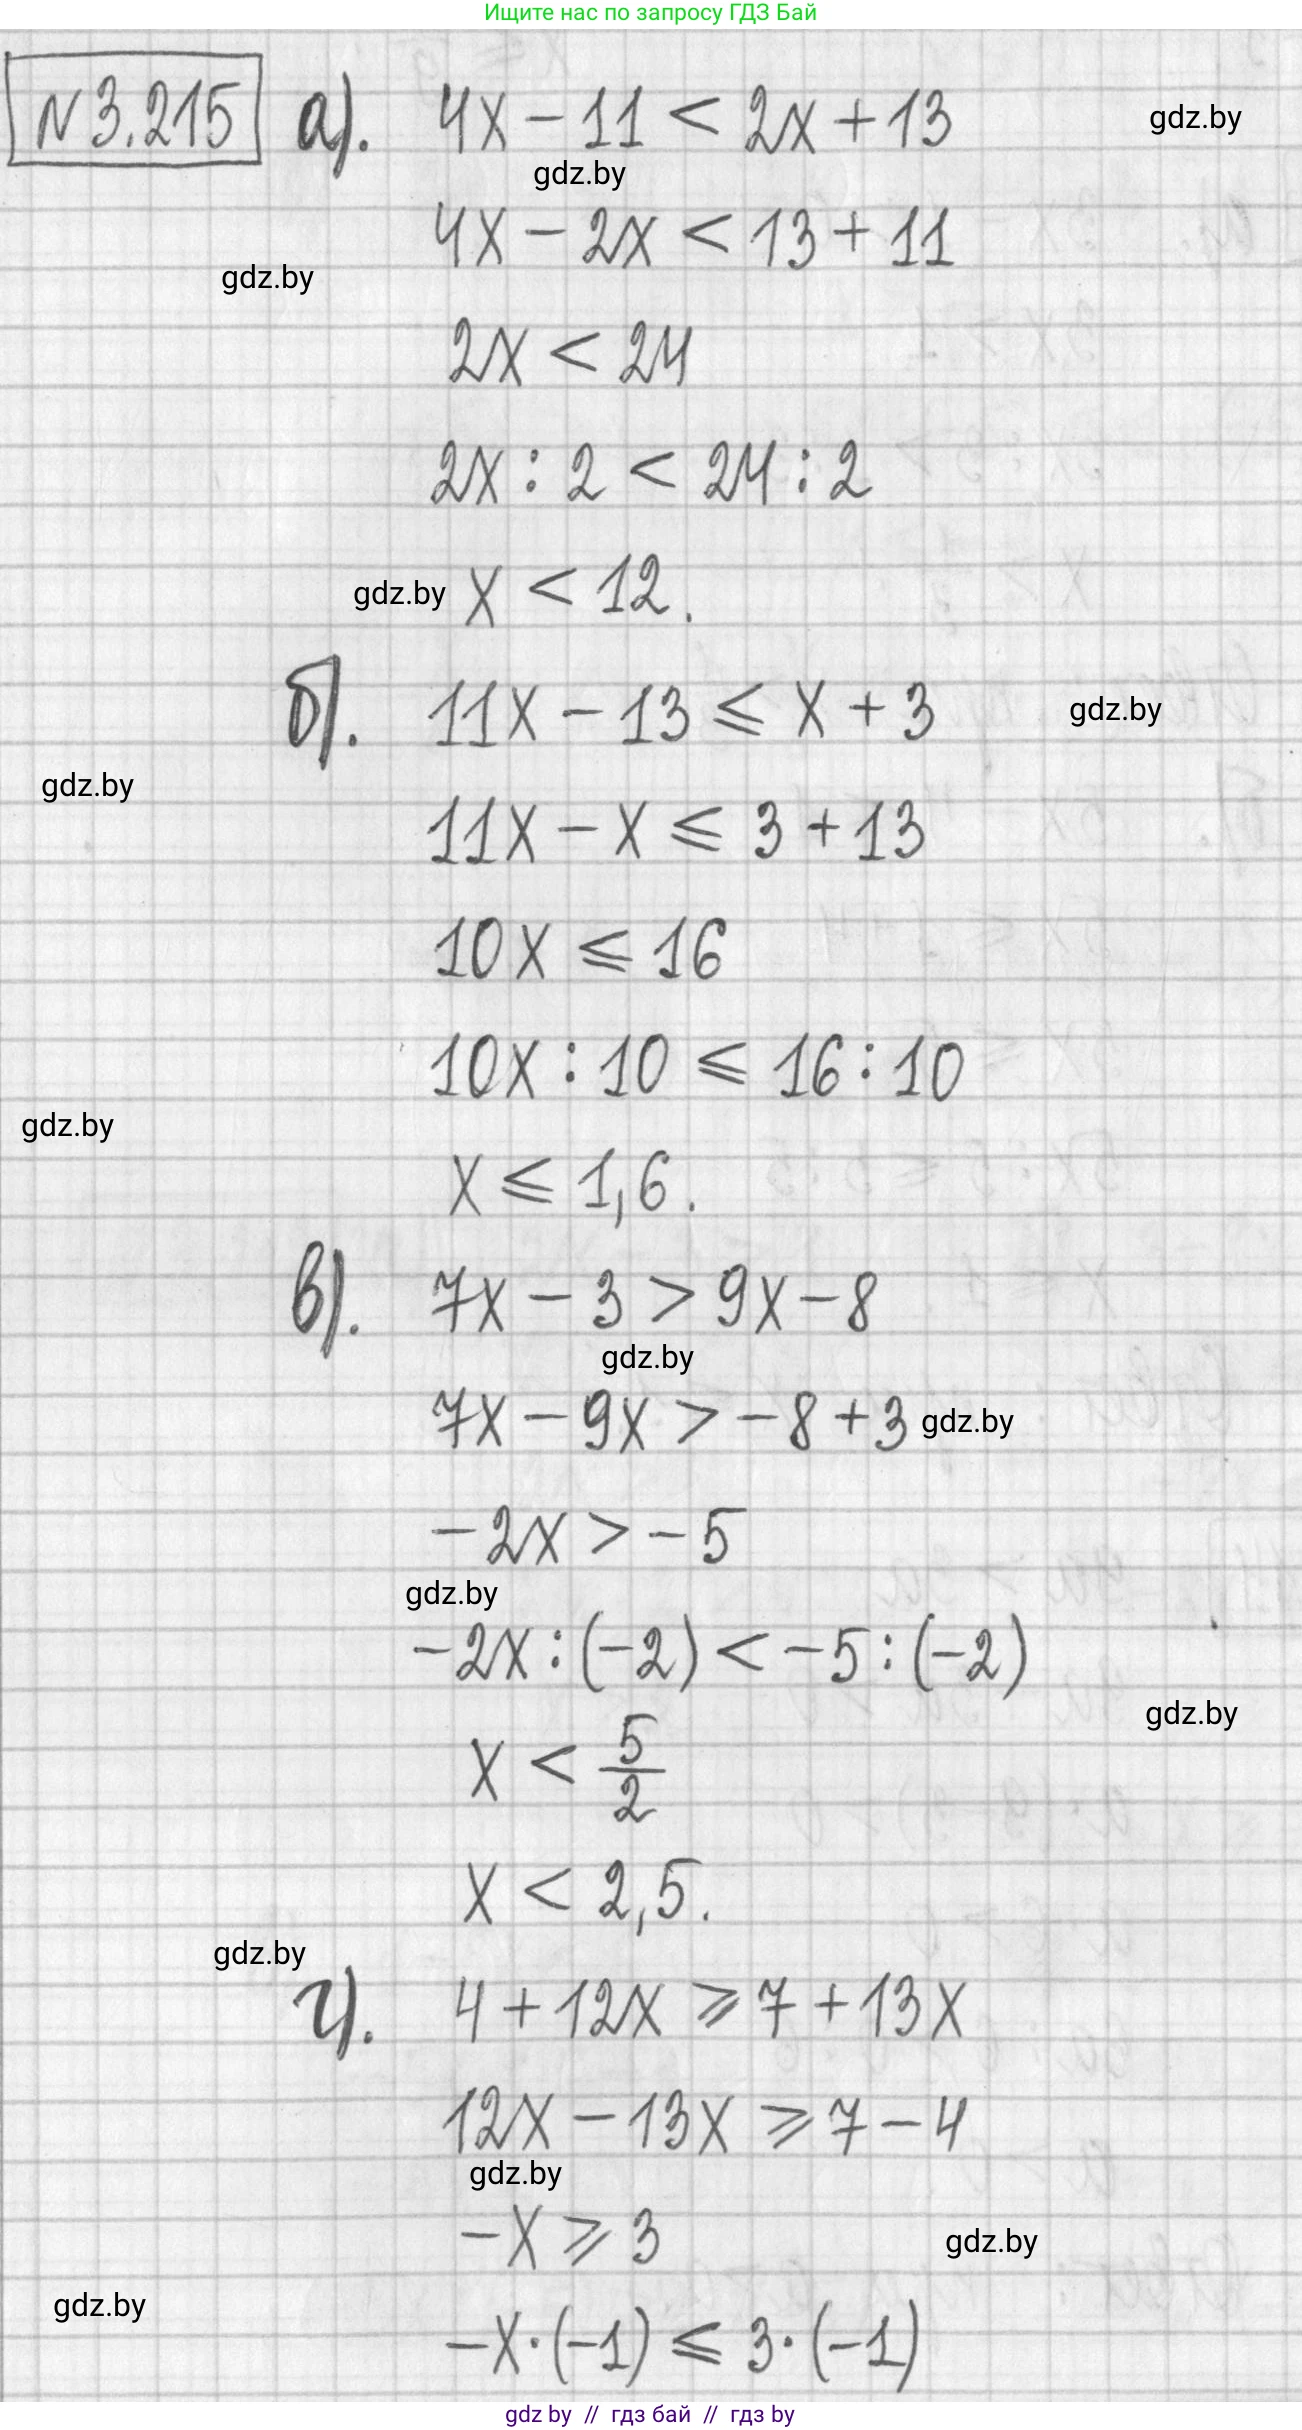 Ищите нас по запросу ГДЗ Бай
№3.215 а). 4x - 11 < 2x + 13
gdz.by
gdz.by
4x - 2x < 13 + 11
gdz.by
2x < 24
2x : 2 < 24 : 2
gdz.by x < 12.
б). 11x - 13 ⩽ x + 3
gdz.by
gdz.by
11x - x ⩽ 3 + 13
10x ⩽ 16
10x : 10 ⩽ 16 : 10
gdz.by
x ⩽ 1,6.
в). 7x - 3 > 9x - 8
gdz.by
7x - 9x > -8 + 3 gdz.by
-2x > -5
gdz.by
-2x : (-2) < -5 : (-2)
gdz.by
x < 5/2
x < 2,5.
gdz.by
г). 4 + 12x ⩾ 7 + 13x
12x - 13x ⩾ 7 - 4
gdz.by
-x ⩾ 3
gdz.by
gdz.by
-x · (-1) ⩽ 3 · (-1)
gdz by // гдз бай // гдз by